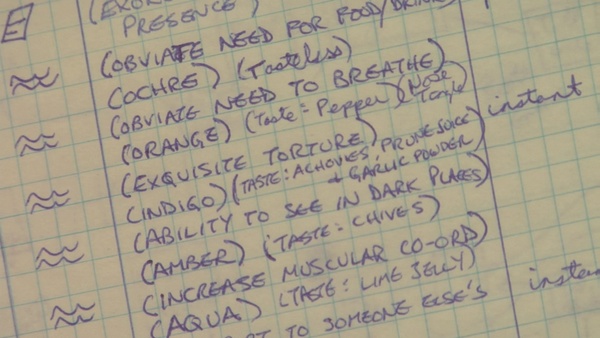 PRESENCE)
(OBVIATE NEED FOR FOOD/DRINK)
(OCHRE) (Tasteless)
(OBVIATE NEED TO BREATHE)
(ORANGE) (Taste: Pepper) (Nose Tingle)
(EXQUISITE TORTURE) instant
(INDIGO) (TASTE: ACHOVIES, PRUNE JUICE + GARLIC POWDER)
(ABILITY TO SEE IN DARK PLACES)
(AMBER) (TASTE: CHIVES)
(INCREASE MUSCULAR CO-ORD)
(AQUA) (TASTE: LIME JELLY)
TO SOMEONE ELSE'S